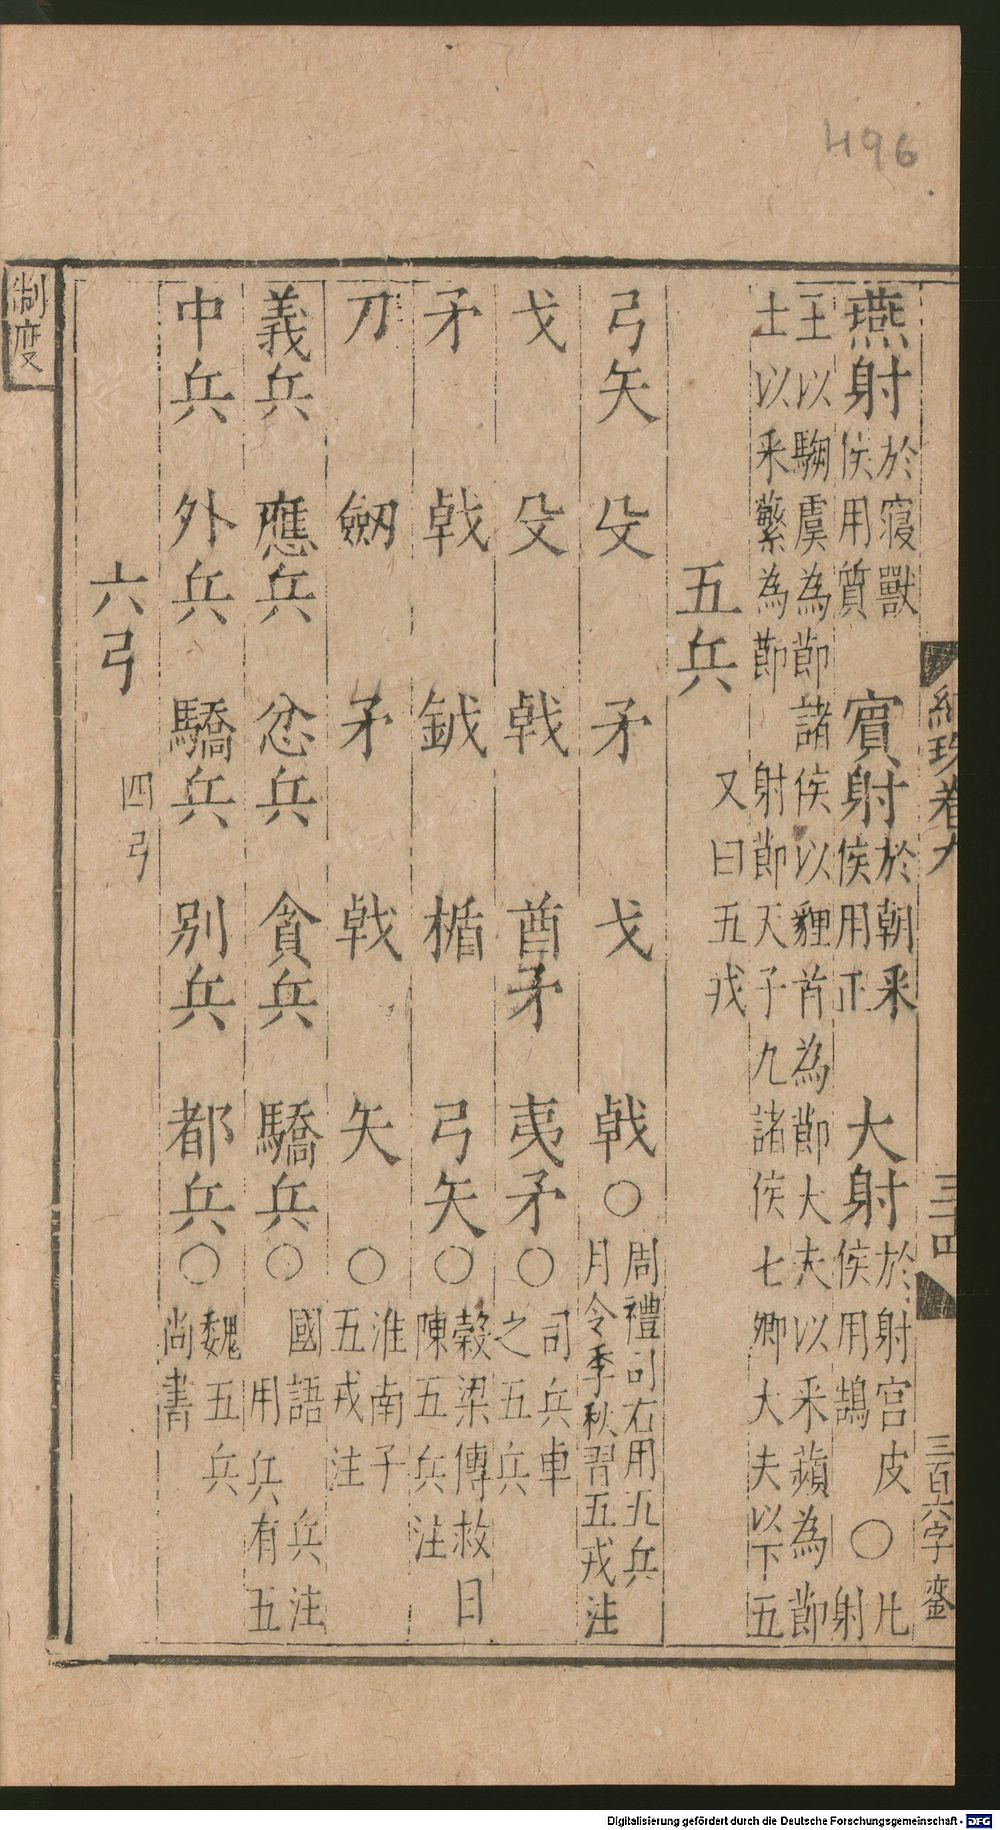 496
紺珠卷九
三十四
三百六字
燕射於寢獸侯用質 賓射於朝釆侯用正 大射於射宮皮侯用鵠 ○凡射
王以騶虞為節諸侯以貍首為節大夫以釆蘋為節
士以釆蘩為節 射節天子九諸侯七卿大夫以下五
五兵 又曰五戎
弓矢 殳 矛 戈 戟○周禮司右用五兵月令季秋習五戎注
戈 殳 戟 酋矛 夷矛○司兵車之五兵
矛 戟 鉞 楯 弓矢○榖梁傳救日陳五兵注
刀 劒 矛 戟 矢○淮南子五戎注
義兵 應兵 忿兵 貪兵 驕兵○國語兵注用兵有五
中兵 外兵 驕兵 别兵 都兵○魏五兵尚書
六弓 四弓
制度
Digitalisierung gefördert durch die Deutsche Forschungsgemeinschaft - DFG